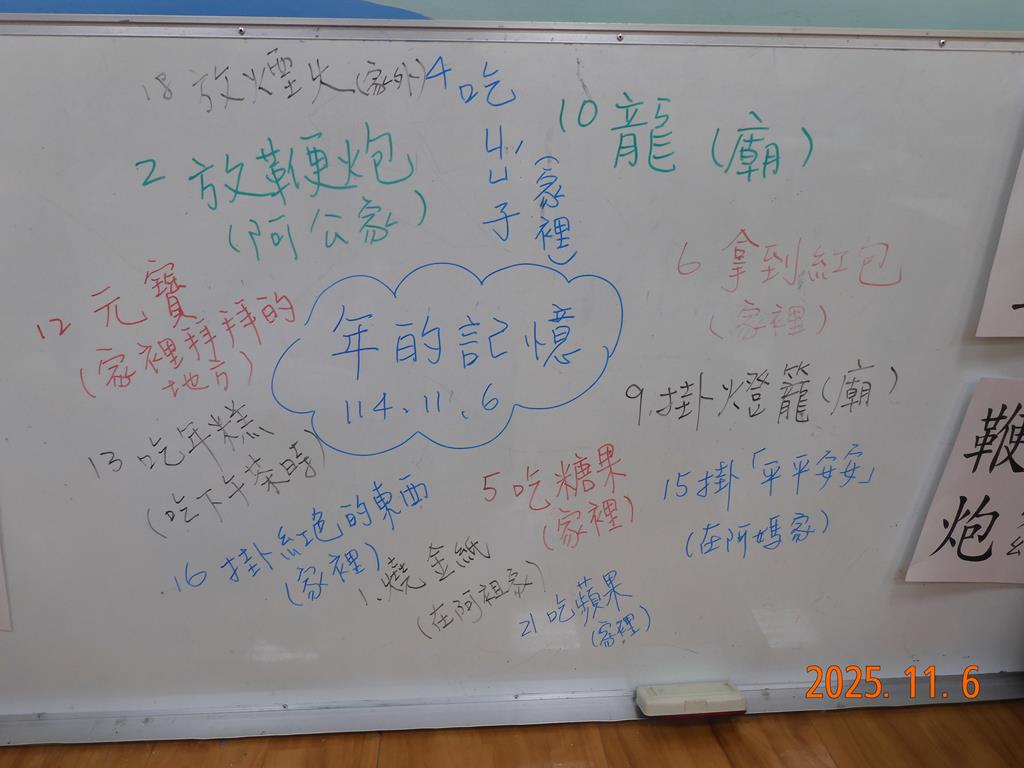 18 放煙火(家外)
4 吃
ㄐㄩˊ子
(家裡)
10 龍(廟)
2 放鞭炮
(阿公家)
6 拿到紅包
(家裡)
12 元寶
(家裡拜拜的
地方)
年的記憶
114.11.6
9.掛燈籠(廟)
13 吃年糕
(吃下午茶時)
5 吃糖果
(家裡)
15 掛「平平安安」
(在阿媽家)
16 掛紅色的東西
(家裡)
1.燒金紙
(在阿祖家)
21 吃蘋果
(家裡)
鞭
炮
2025.11.6